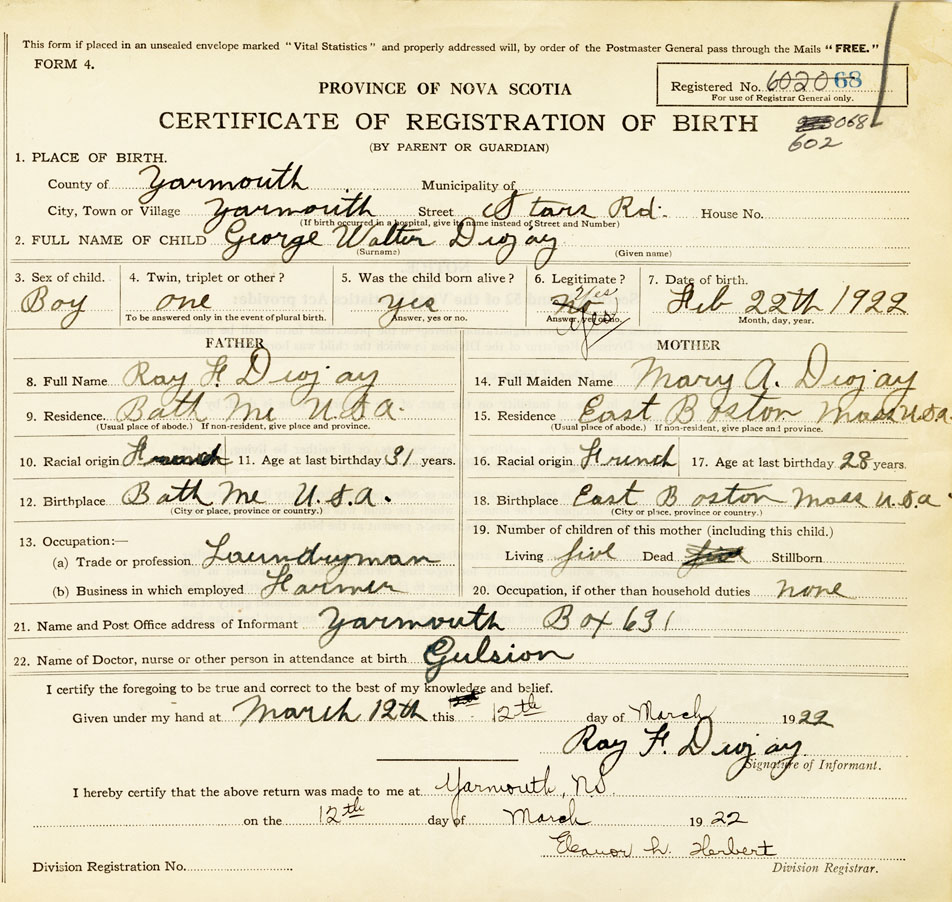 This form if placed in an unsealed envelope marked "Vital Statistics" and properly addressed will, by order of the Postmaster General pass through the Mails "FREE."
FORM 4.
PROVINCE OF NOVA SCOTIA
Registered No. 6020 68
For use of Registrar General only.
CERTIFICATE OF REGISTRATION OF BIRTH
068
602
(BY PARENT OR GUARDIAN)
1. PLACE OF BIRTH.
County of Yarmouth Municipality of
City, Town or Village Yarmouth Street Stars Rd. House No.
(If birth occurred in a hospital, give its name instead of Street and Number)
2. FULL NAME OF CHILD George Walter Diojay
(Surname) (Given name)
3. Sex of child. 4. Twin, triplet or other? 5. Was the child born alive? 6. Legitimate? 7. Date of birth.
Boy one yes No Yes Yes Feb 22th 1922
To be answered only in the event of plural birth. Answer, yes or no. Answer, yes or no. Month, day, year.
FATHER MOTHER
8. Full Name Ray F. Diojay 14. Full Maiden Name Mary A. Diojay
9. Residence. Bath Me U.S.A. 15. Residence East Boston Mass U.S.A.
(Usual place of abode.) If non-resident, give place and province. (Usual place of abode.) If non-resident, give place and province.
10. Racial origin French 11. Age at last birthday 31 years. 16. Racial origin French 17. Age at last birthday 28 years.
12. Birthplace Bath Me U.S.A. 18. Birthplace East Boston Mass U.S.A
(City or place, province or country.) (City or place, province or country.)
19. Number of children of this mother (including this child.)
13. Occupation:—
(a) Trade or profession Laundryman Living five Dead five Stillborn
(b) Business in which employed Farmer 20. Occupation, if other than household duties none
21. Name and Post Office address of Informant Yarmouth Box 631
22. Name of Doctor, nurse or other person in attendance at birth Gulsion
I certify the foregoing to be true and correct to the best of my knowledge and belief.
Given under my hand at March 12th this 12th day of March 1922
Ray F. Diojay
Signature of Informant.
I hereby certify that the above return was made to me at Yarmouth, N.S.
on the 12th day of March 1922
Eleanor L. Herbert
Division Registration No. Division Registrar.